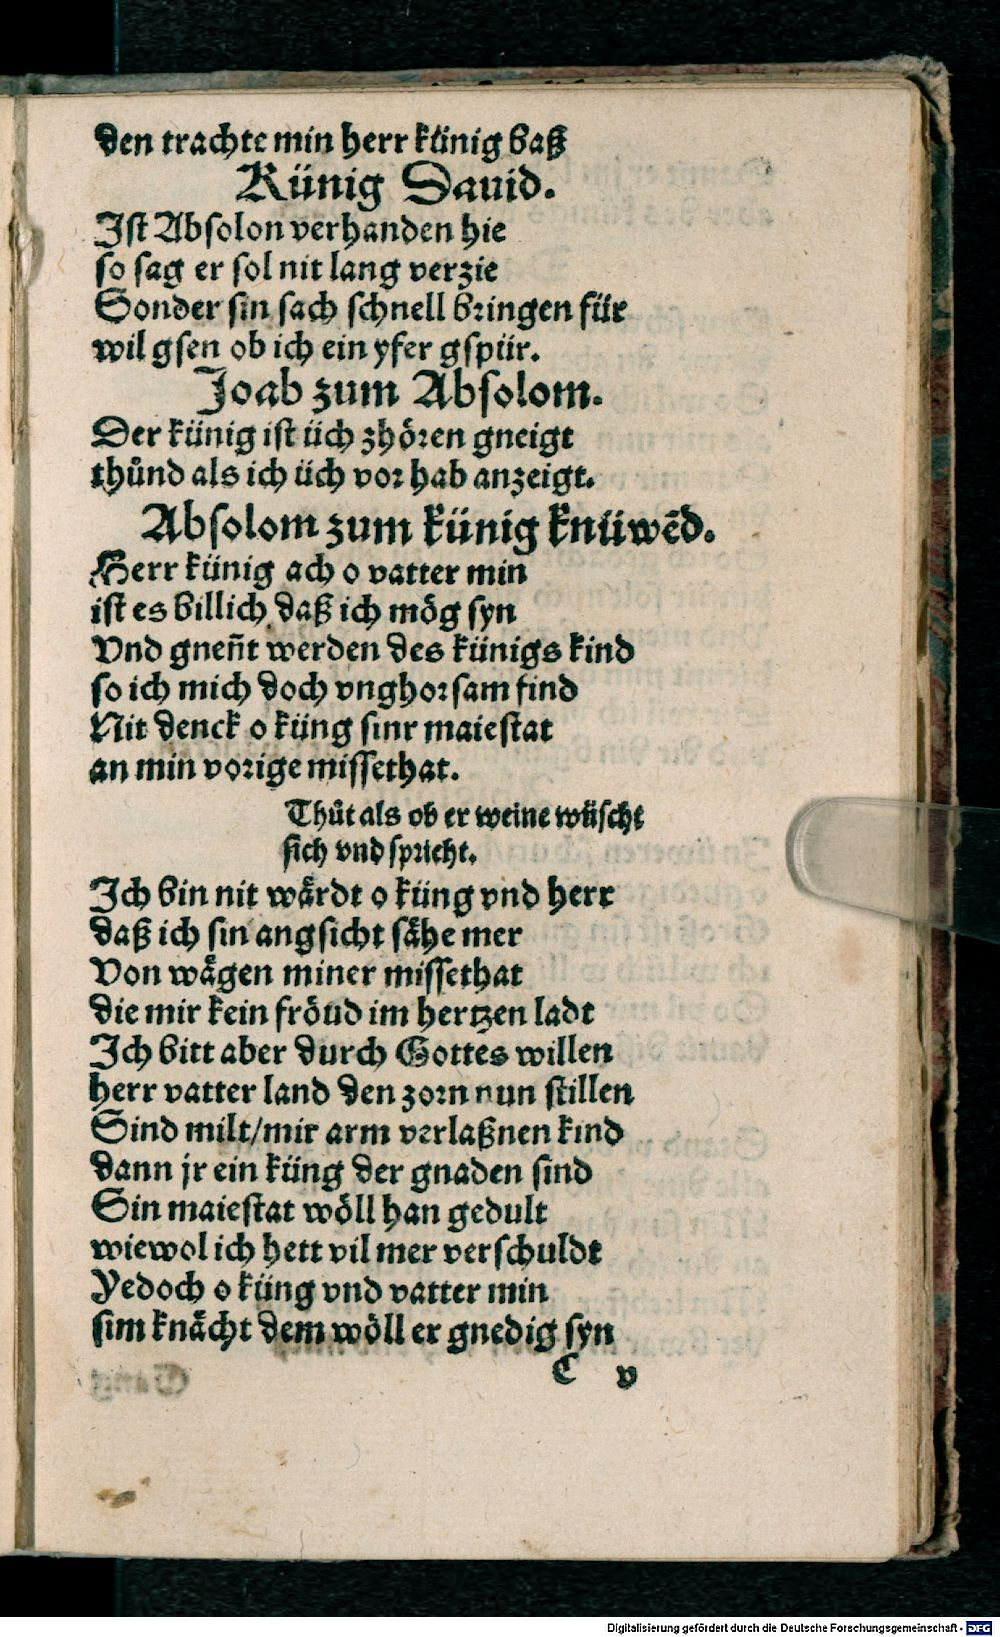 den trachte min herr künig baß
Künig Dauid.
Ist Absolon verhanden hie
so sag er sol nit lang verzie
Sonder sin sach schnell bringen für
wil gsen ob ich ein yfer gspür.
Joab zum Absolom.
Der künig ist üch zhören gneigt
thůnd als ich üch vor hab anzeigt.
Absolom zum künig knüwēd.
Herr künig ach o vatter min
ist es billich daß ich mög syn
Vnd gneñt werden des künigs kind
so ich mich doch vnghorsam find
Nit denck o küng sinr maiestat
an min vorige missethat.
Thůt als ob er weine wüscht
sich vnd spricht.
Ich bin nit wårdt o küng vnd herr
daß ich sin angsicht såhe mer
Von wågen miner missethat
die mir kein fröud im hertzen ladt
Ich bitt aber durch Gottes willen
herr vatter land den zorn nun stillen
Sind milt/mir arm verlaßnen kind
dann jr ein küng der gnaden sind
Sin maiestat wöll han gedult
wiewol ich hett vil mer verschuldt
Yedoch o küng vnd vatter min
sim knåcht dem wöll er gnedig syn
C v
Digitalisierung gefördert durch die Deutsche Forschungsgemeinschaft - DFG